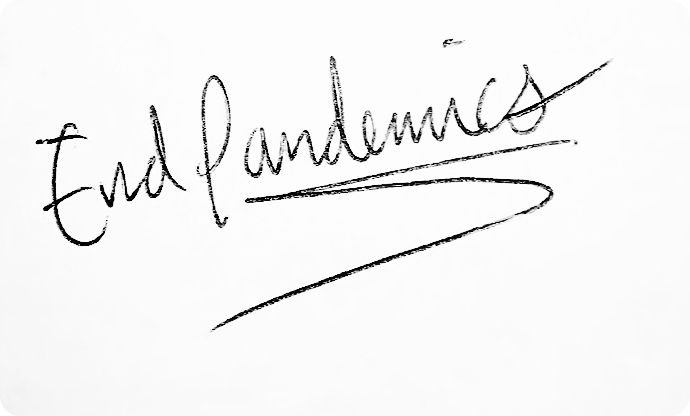 End Pandemics